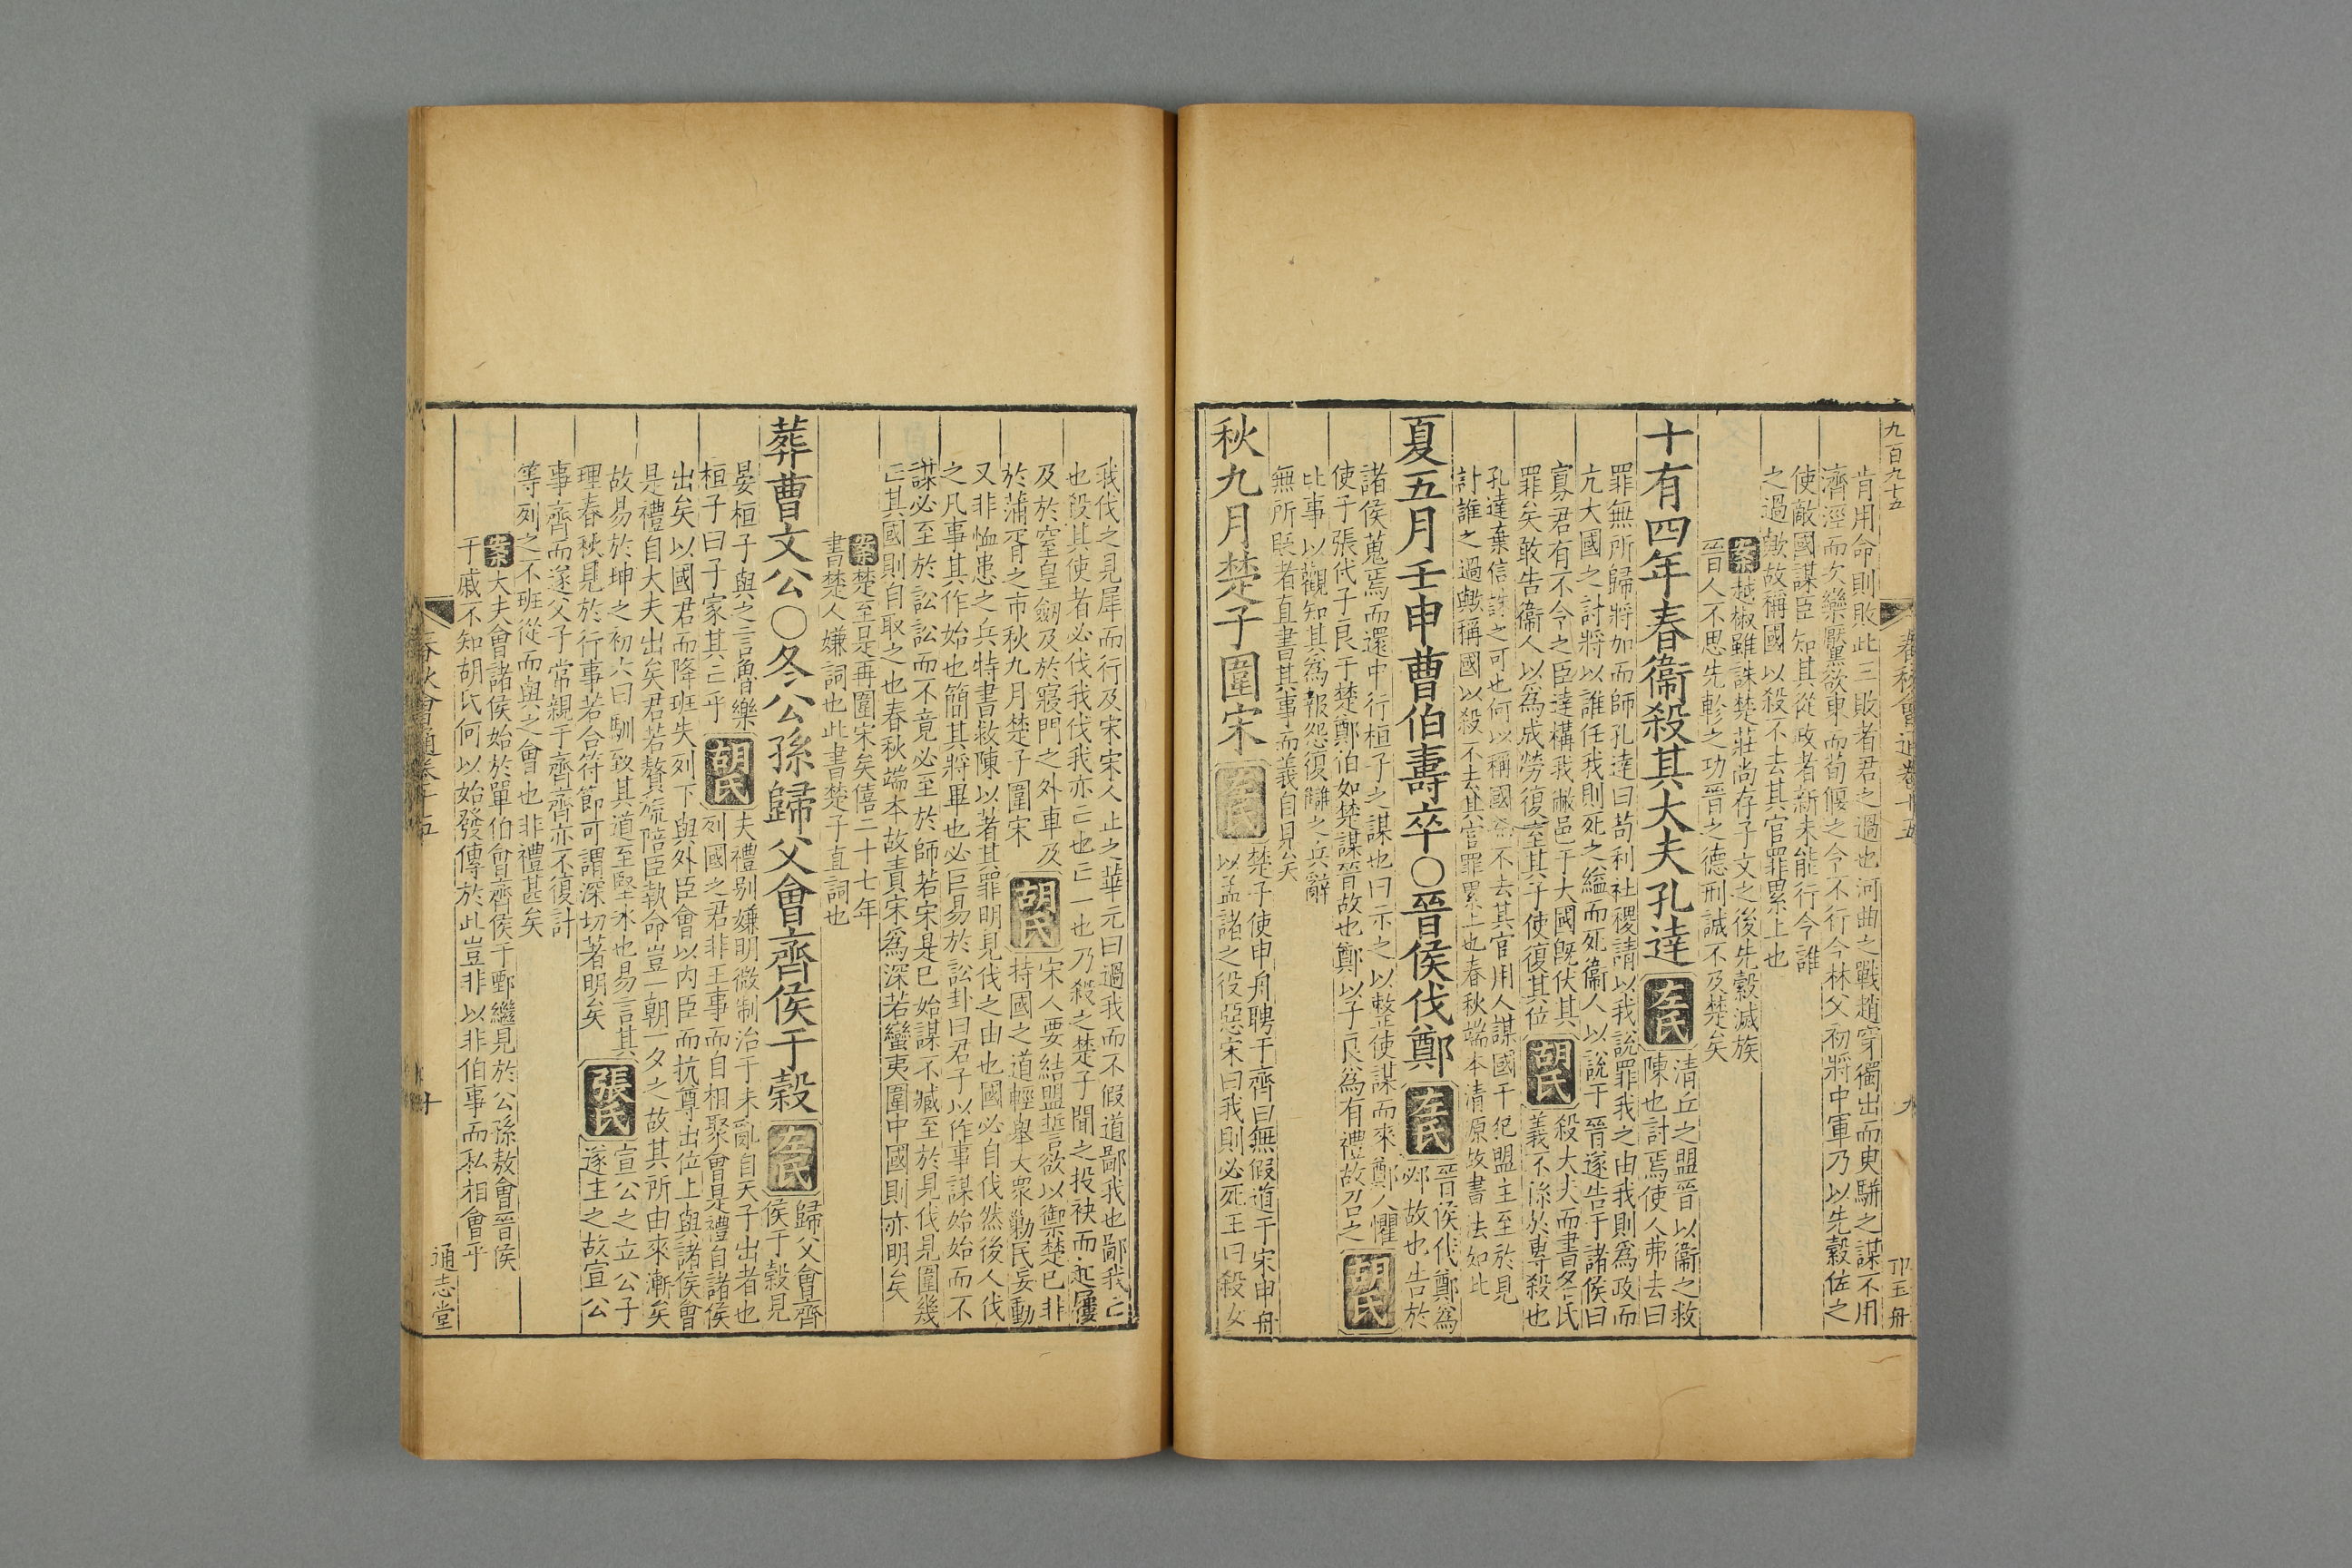 九百九十五
春秋會通卷十五
九
卬玉冊
肯用命則敗此三敗者君之過也河曲之戰趙穿獨出而臾駢之謀不用
濟涇而次欒黶欲東而荀偃之令不行今林父初將中軍乃以先縠佐之
使敵國謀臣知其從政者新未能行令誰
之過歟故稱國以殺不去其官罪累上也
案越椒雖誅楚莊尚存子文之後先縠滅族
晉人不思先軫之功晉之德刑誠不及楚矣
十有四年春衞殺其大夫孔達左氏清丘之盟晉以衞之救
陳也討焉使人弗去曰
罪無所歸將加而師孔達曰苟利社稷請以我說罪我之由我則爲政而
亢大國之討將以誰任我則死之縊而死衞人以說于晉遂告于諸侯曰
寡君有不令之臣達構我敝邑于大國旣伏其
罪矣敢告衞人以爲成勞復室其子使復其位
胡氏殺大夫而書名氏
義不係於專殺也
孔達棄信誅之可也何以稱國而不去其官用人謀國干犯盟主至於見
計誰之過歟稱國以殺不去其官罪累上也春秋端本清源故書法如此
夏五月壬申曹伯壽卒○晉侯伐鄭左氏晉侯伐鄭爲
邲故也告於
諸侯蒐焉而還中行桓子之謀也曰示之以整使謀而來鄭人懼
使子張代子良于楚鄭伯如楚謀晉故也鄭以子良爲有禮故召之
胡氏
比事以觀知其爲報怨復讎之兵辭
無所貶者直書其事而義自見矣
秋九月楚子圍宋左氏楚子使申舟聘于齊曰無假道于宋申舟
以孟諸之役惡宋曰我則必死王曰殺女
我伐之見犀而行及宋宋人止之華元曰過我而不假道鄙我也鄙我亡
也殺其使者必伐我伐我亦亡也亡一也乃殺之楚子聞之投袂而起屨
及於窒皇劒及於寢門之外車及
於蒲胥之市秋九月楚子圍宋
胡氏宋人要結盟誓欲以禦楚已非
持國之道輕舉大衆勦民妄動
又非恤患之兵特書救陳以著其罪明見伐之由也國必自伐然後人伐
之凡事其作始也簡其將畢也必巨易於訟卦曰君子以作事謀始始而不
謀必至於訟訟而不竟必至於師若宋是已始謀不臧至於見伐見圍幾
亡其國則自取之也春秋端本故責宋爲深若蠻夷圍中國則亦明矣
案楚至是再圍宋矣僖二十七年
書楚人嫌詞也此書楚子直詞也
葬曹文公○冬公孫歸父會齊侯于穀左氏歸父會齊
侯于穀見
晏桓子與之言魯樂
桓子曰子家其亡乎
胡氏夫禮别嫌明微制治于未亂自天子出者也
列國之君非王事而自相聚會是禮自諸侯
出矣以國君而降班失列下與外臣會以内臣而抗尊出位上與諸侯會
是禮自大夫出矣君若贅旒陪臣執命豈一朝一夕之故其所由來漸矣
故易於坤之初六曰馴致其道至堅冰也易言其
理春秋見於行事若合符節可謂深切著明矣
張氏宣公之立公子
遂主之故宣公
事齊而遂父子常親于齊齊亦不復計
等列之不班從而與之會也非禮甚矣
案大夫會諸侯始於單伯會齊侯于鄄繼見於公孫敖會晉侯
于戚不知胡氏何以始發傳於此豈非以非伯事而私相會乎
春秋會通卷十五
十
通志堂